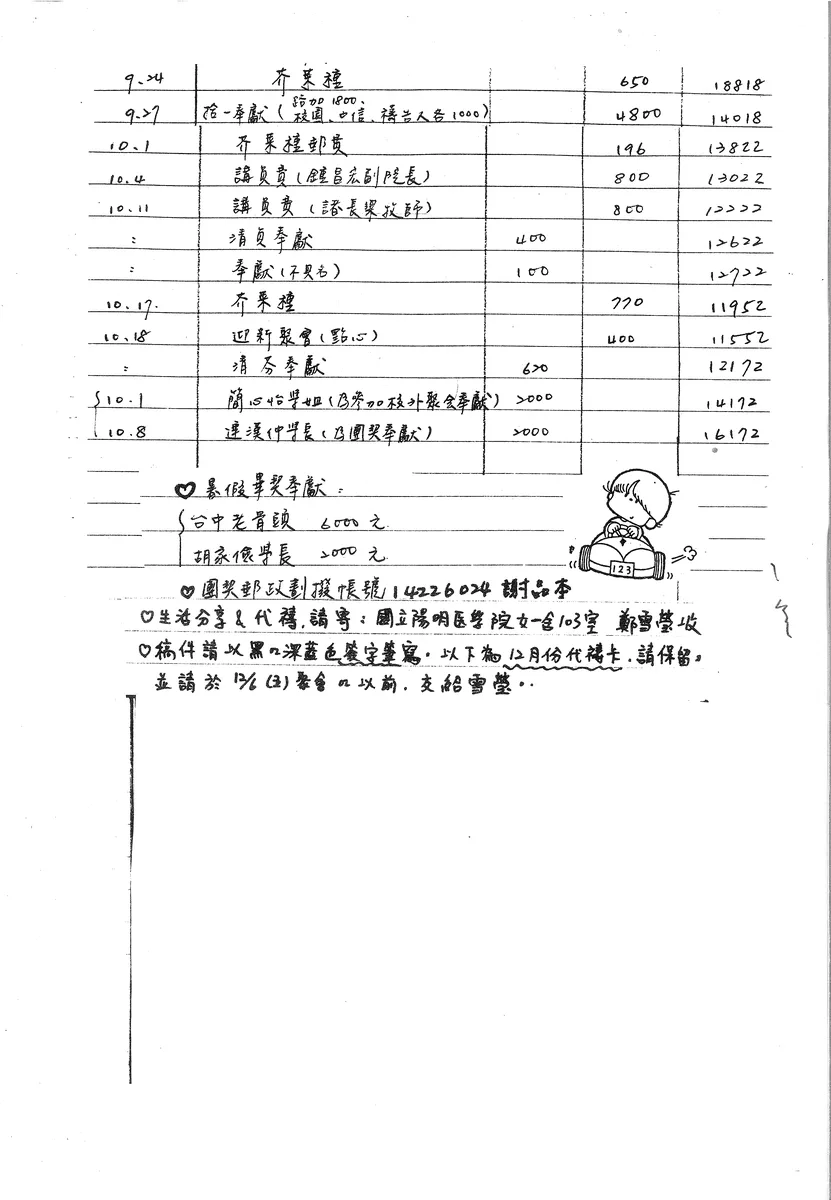 9.24 芥菜種 650 18818
9.27 拾一奉獻(路加1800、校園、中信、禱告人各1000) 4800 14018
10.1 芥菜種郵費 196 13822
10.4 講員費(鍾昌宏副院長) 800 13022
10.11 講員費(諾長樂牧師) 800 12222
: 清貞奉獻 400 12622
: 奉獻(不具名) 100 12722
10.17. 芥菜種 770 11952
10.18 迎新聚會(點心) 400 11552
: 清芬奉獻 620 12172
10.1 簡心怡學姐(乃參加校外聚会奉獻) 2000 14172
10.8 連漢仲學長(乃團契奉獻) 2000 16172
♡暑假畢契奉獻:
台中老骨頭 6000元
胡家儉學長 2000元
123
♡團契郵政劃撥帳號14226024 謝品本
♡生活分享&代禱,請寄:國立陽明医學院女一舍103室 鄭雪瑩收
♡稿件請以黑or深藍色簽字筆寫。以下為12月份代禱卡,請保留。
並請於12/6(五)聚會or以前,交給雪瑩..